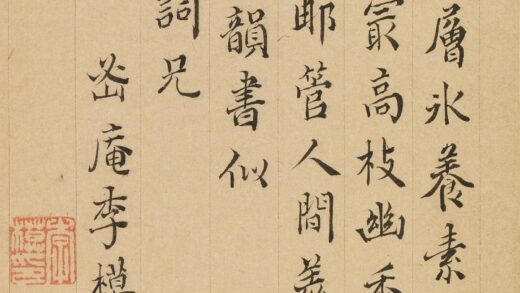 層氷養素
最高枝幽香
邮管人間
韻書似
詞兄
庵李模